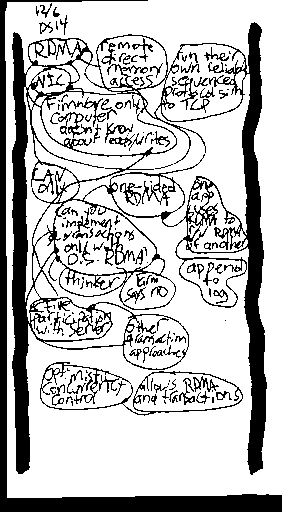 12/6
DS14
RDMA
remote
direct
memory
access
run their
own reliable
sequenced
protocol sim
to TCP
NIC
Firmware only
computer
doesn't know
about reads/writes
LAN
only
one-sided
RDMA
one
app
uses
RDMA to
r/w RDMA
of another
can you
implement
transactions
only with
O.S. RDMA?
thinker
Farm
says no
append
to
log
active
participation
with server
other
transaction
approaches
optimistic
concurrency
control
allows RDMA
and transactions